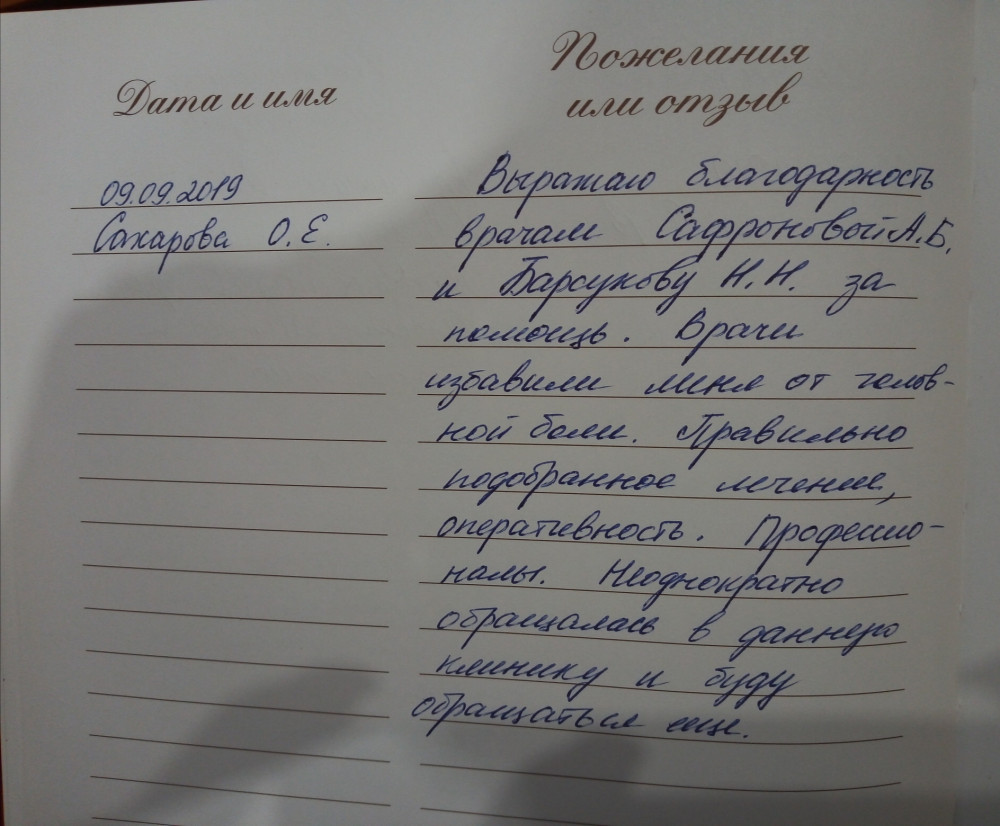 Дата и имя
Пожелания
или отзыв
09.09.2019
Сахарова О.Е.
Выражаю благодарность
врачам Сафроновой А.Б.
и Барсукову Н.Н. за
помощь. Врачи
избавили меня от голов-
ной боли. Правильно
подобранное лечение,
оперативность. Профессио-
налы. Неоднократно
обращалась в данную
клинику и буду
обращаться еще.